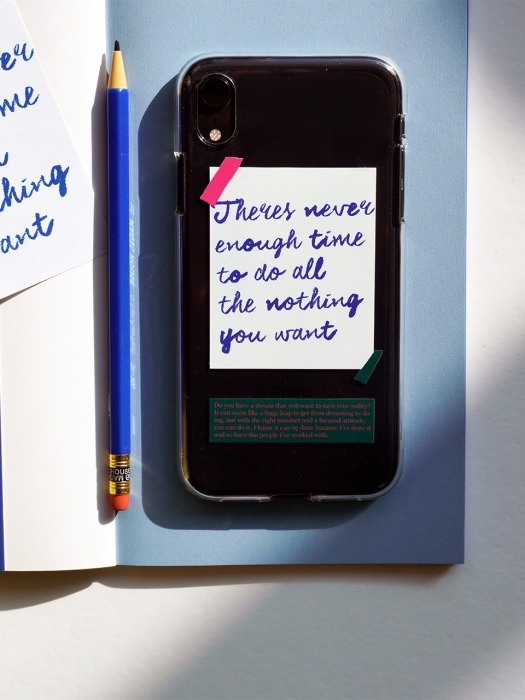 er
me
hing
ant
Theres never
enough time
to do all
the nothing
you want
Do you have a dream that you want to turn into reality?
It can seem like a huge leap to get from dreaming to do
ing, but with the right mindset and a focused attitude,
you can do it, I know it can be done because I've done it
and so have the people I've worked with.